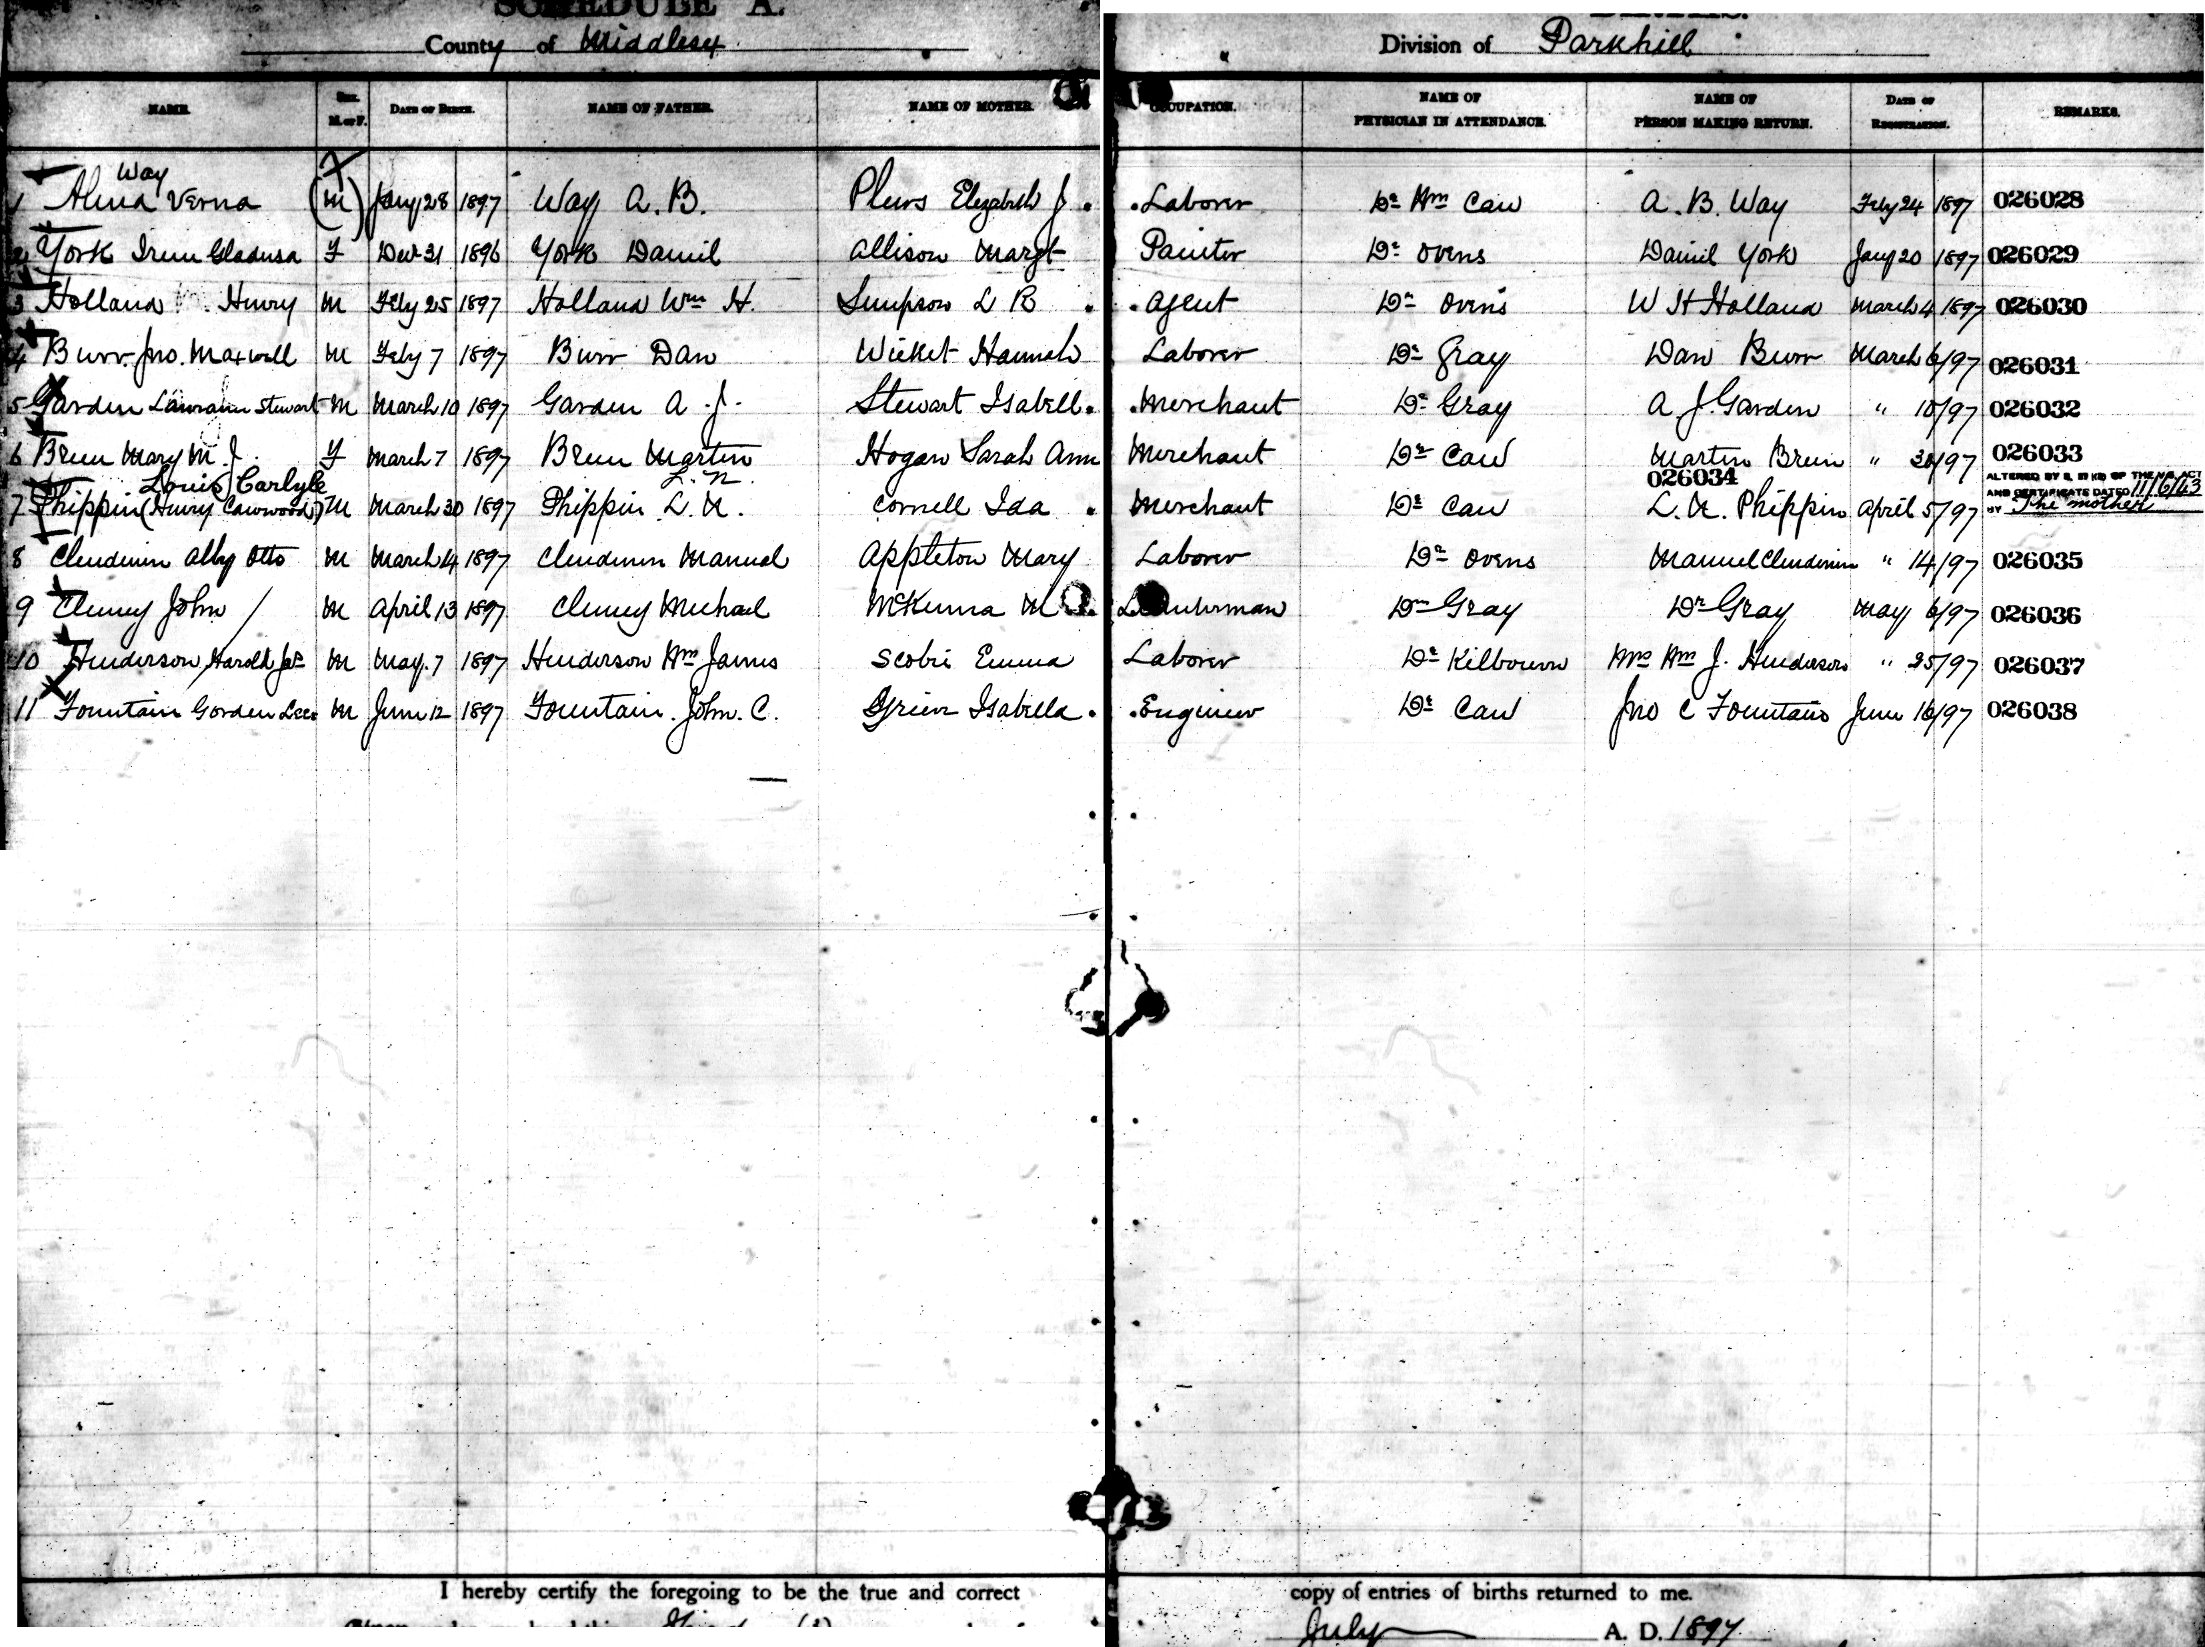 SCHEDULE A.
County of Middlesex
Division of Parkhill
NAME. SEX. M. or F. DATE OF BIRTH. NAME OF FATHER. NAME OF MOTHER. OCCUPATION. NAME OF PHYSICIAN IN ATTENDANCE. NAME OF PERSON MAKING RETURN. DATE OF REGISTRATION. REMARKS.
Way F
1 Verna (M) Jany 28 1897 Way A. B. Plews Elizabeth J. Laborer Dr Wm Caw A. B. Way Feby 24 1897 026028
2 York Irene Gladusa F Dec 31 1896 York Daniel Allison Margt Painter Dr Ovens Daniel York Jany 20 1897 026029
3 Holland Henry M Feby 25 1897 Holland Wm H. Simpson L R Agent Dr Ovens W H Holland March 4 1897 026030
4 Burr Jno. Maxwell M Feby 7 1897 Burr Dan Wicket Hannah Laborer Dr Gray Dan Burr March 6/97 026031
5 Garden Stewart M March 10 1897 Garden A. J. Stewart Isabell Merchant Dr Gray A J. Garden " 10/97 026032
6 Breen Mary M. J. F March 7 1897 Breen Martin Hogan Sarah Ann Merchant Dr Caw Martin Breen " 30/97 026033
Louis Carlyle L. N. 026034 ALTERED BY S. OF THE V.S. ACT
7 Phippin (Henry Cawwood) M March 30 1897 Phippin L. N. Cornell Ida Merchant Dr Caw L. N. Phippin April 5/97 AND CERTIFICATE DATED 11/6/63
BY The mother
8 Clendinin Alby Otto M March 14 1897 Clendinin Manuel Appleton Mary Laborer Dr Ovens Manuel Clendinin " 14/97 026035
9 John M April 13 1897 Michael McKenna M Dr Gray Dr Gray May 6/97 026036
10 Henderson Harold Jas M May 7 1897 Henderson Wm James Scobie Emma Laborer Dr Kilbourn Mrs Wm J. Henderson " 25/97 026037
11 Fountain Gorden Lee M June 12 1897 Fountain John. C. Grieve Isabella Engineer Dr Caw Jno C Fountain June 16/97 026038
I hereby certify the foregoing to be the true and correct copy of entries of births returned to me.
July A. D. 1897